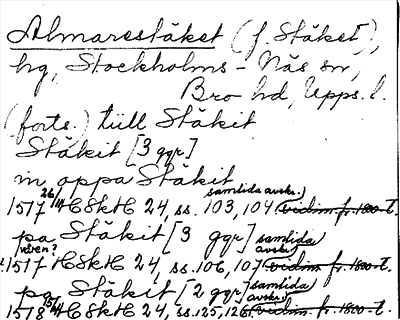 Almarestäket (f. Stäket),
hg, Stockholms-Näs sn,
Bro hd, Upps. l.
(forts.) tüll Stäkit
Stäkit [3 ggr]
in oppa Stäkit
samtida avskr.
1577 26/4 HSkH 24, ss. 103, 104 vidim. fr. 1800-t.
pa Stäkit [3 ggr] samtida avskr.
även?
1577 HSkH 24, ss. 106, 107 vidim. fr. 1800-t.
pa Stäkit [2 ggr] samtida avskr.
1578 HSkH 24, ss. 125, 126 vidim. fr. 1800-t.